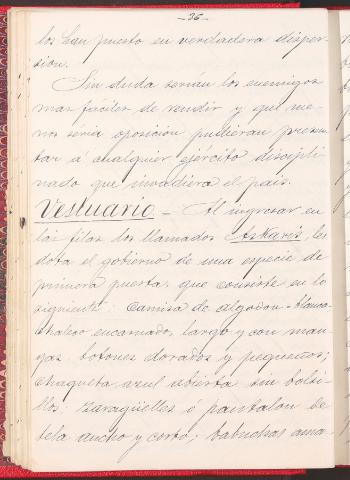 -36-
los han puesto en verdadera disper-
sion.
Sin duda serían los enemigos
mas fáciles de rendir y que me-
nos seria oposición pudieran presen-
tar á cualquier ejército discipli-
nado que invadiera el pais.
Vestuario - Al ingresar en
las filas los llamados Askaris, les
dota el gobierno de una especie de
primera puesta, que consiste en lo
siguiente: Camisa de algodon blanca
chaleco encarnado, largo y con man-
gas, botones dorados y pequeños;
chaqueta azul abierta sin bolsi-
llos; zaragüelles ó pantalon de
tela ancho y corto; babuchas ama-